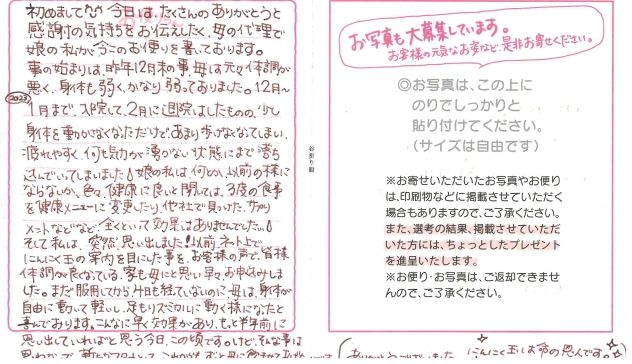 初めまして 今日は、たくさんのありがとうと
感謝の気持ちをお伝えしたく、母の代理で
娘の私が、今このお便りを書いております。
事の始まりは、昨年12月末の事、母は元々体調が
悪く、身体も弱く、かなり弱っておりました。12月〜
2023
1月まで、入院して、2月に退院はしたものの、少し
身体を動かさなくなっただけで、あまり歩けなくなってしまい、
疲れやすく、何も気力が湧かない状態にまで落ち
込んでいってしまいました！娘の私は、何とか、以前の様に
ならないか、色々健康に良いと聞いては、3度の食事
を健康メニューに変更したり、他社で買った、サプリ
メントなどなど、全くといって効果はありませんでした！
そして私は、突然、思い出しました！以前、ネット上で
にんにく玉の案内を目にした事を、お客様の声で、皆様
体調が良くなっている。家も母にと思い早々、お申込みしま
した。まだ服用してから、一ヶ月も経ていないのに母は、身体が
自由に動って軽いし、足もリズミカルに動く様になったと
喜んでおります。こんなに早く効果があり、もっと半年前に
思い出していればと思う今日、この頃です。けど、そんな事は
谷折り線
お写真も大募集しています。
お客様の元気なお姿など、是非お寄せください。
◎お写真は、この上に
のりでしっかりと
貼り付けてください。
（サイズは自由です）
※お寄せいただいたお写真やお便り
は、印刷物などに掲載させていただく
場合もありますので、ご了承ください。
また、選考の結果、掲載させていただ
いた方には、ちょっとしたプレゼント
を進呈いたします。
※お便り・お写真は、ご返却できませ
んので、ご了承ください。
にんにく玉は命の恩人です。